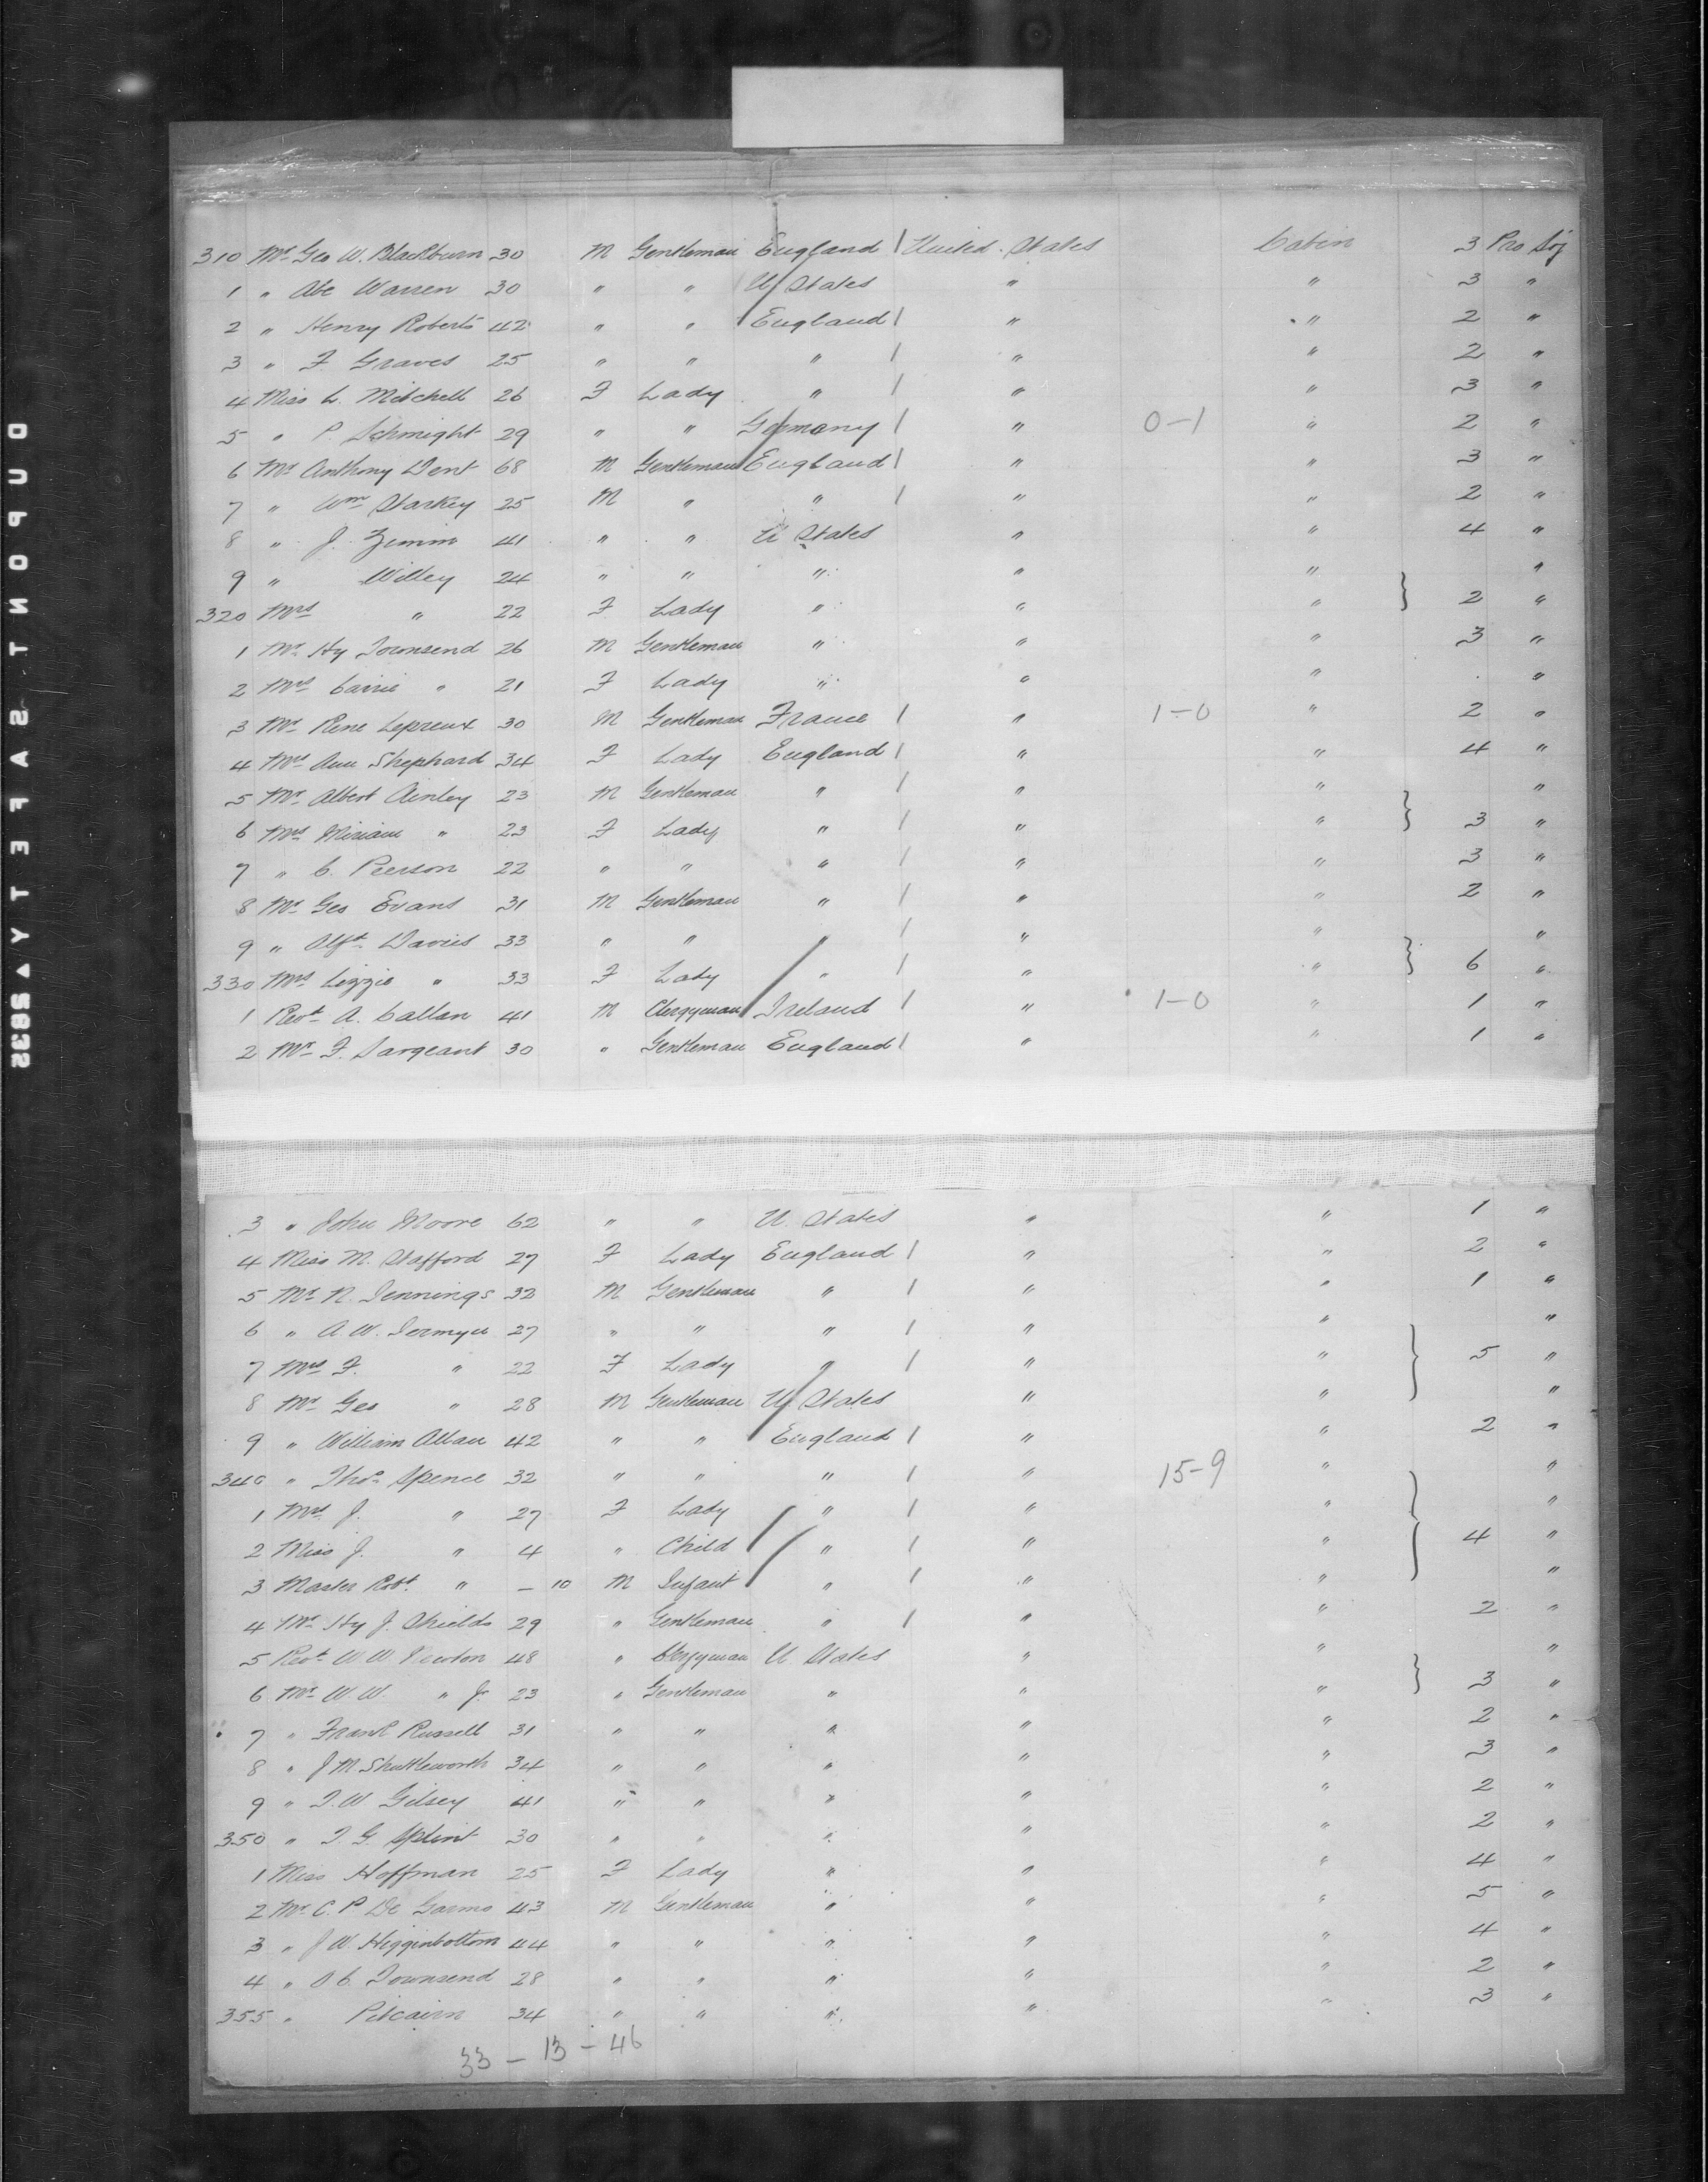 310 Mr Geo W. Blackburn 30 M Gentleman England / United States Cabin 3 Pro Soj
1 " Abe Warren 30 " " U States " " 3 "
2 " Henry Roberts 42 " " England / " " 2 "
3 " F Graves 25 " " " / " " 2 "
4 Miss L. Mitchell 26 F Lady " / " " 3 "
5 " P. Schmight 29 " " Germany / " 0-1 " 2 "
6 Mr Anthony Dent 68 M Gentleman England / " " 3 "
7 " Wm Starkey 25 M " " / " " 2 "
8 " J. Zimm 41 " " U States " " 4 "
9 " Willey 24 " " " " " "
320 Mrs " 22 F Lady " " " } 2 "
1 Mr Hy Townsend 26 M Gentleman " " " 3 "
2 Mrs Carrie " 21 F Lady " " " "
3 Mr Rene Lepreux 30 M Gentleman France / " 1-0 " 2 "
4 Mrs Ann Shephard 34 F Lady England / " " 4 "
5 Mr Albert Ainley 23 M Gentleman " / " " "
6 Mrs Miriam " 23 F Lady " / " " } 3 "
7 " C. Peerson 22 " " " / " " 3 "
8 Mr Geo Evans 31 M Gentleman " / " " 2 "
9 " Alfd Davies 33 " " " / " " "
330 Mrs Lizzie " 33 F Lady " / " " } 6 "
1 Revd A. Callan 41 M Clergyman Ireland / " 1-0 " 1 "
2 Mr F. Sargeant 30 " Gentleman England / " " 1 "
3 " John Moore 62 " " U. States " " 1 "
4 Miss M. Stafford 27 F Lady England / " " 2 "
5 Mr N. Jennings 32 M Gentleman " / " " 1 "
6 " A. W. Jermyn 27 " " " / " " "
7 Mrs F. " 22 F Lady " / " " } 5 "
8 Mr Geo " 28 M Gentleman U States " " "
9 " William Allan 42 " " England / " " 2 "
340 " Thos Spence 32 " " " / " 15-9 " "
1 Mrs J. " 27 F Lady " / " " "
2 Miss J. " 4 " Child " / " " } 4 "
3 Master Robt " - 10 M Infant " / " " "
4 Mr Hy J. Shields 29 " Gentleman " / " " 2 "
5 Revd W. W. Newton 48 " Clergyman U States " " "
6 Mr W. W. " Jr. 23 " Gentleman " " " } 3 "
7 " Frank Russell 31 " " " " " 2 "
8 " J M Shuttleworth 34 " " " " " 3 "
9 " J. W Gilsey 41 " " " " " 2 "
350 " J. G. Splint 30 " " " " " 2 "
1 Miss Hoffman 25 F Lady " " " 4 "
2 Mr C. P De Garmo 43 M Gentleman " " " 5 "
3 " J W. Higginbottom 44 " " " " " 4 "
4 " O C. Townsend 28 " " " " " 2 "
355 " Pitcairn 34 " " " " " 3 "
33 - 13 - 46
DUPONT SAFETY